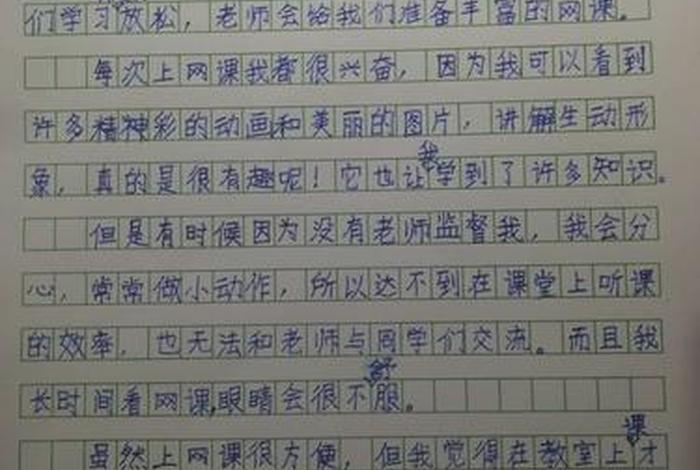 们学习放松，老师会给我们准备丰富的网课。
每次上网课我都很兴奋，因为我可以看到
许多精神彩的动画和美丽的图片，讲解生动形
象，真的是很有趣呢！它也让我学到了许多知识。
但是有时候因为没有老师监督我，我会分
心，常常做小动作，所以达不到在课堂上听课
的效率，也无法和老师与同学们交流。而且我
长时间看网课，眼睛会很不舒服。
虽然上网课很方便，但我觉得在教室上课才